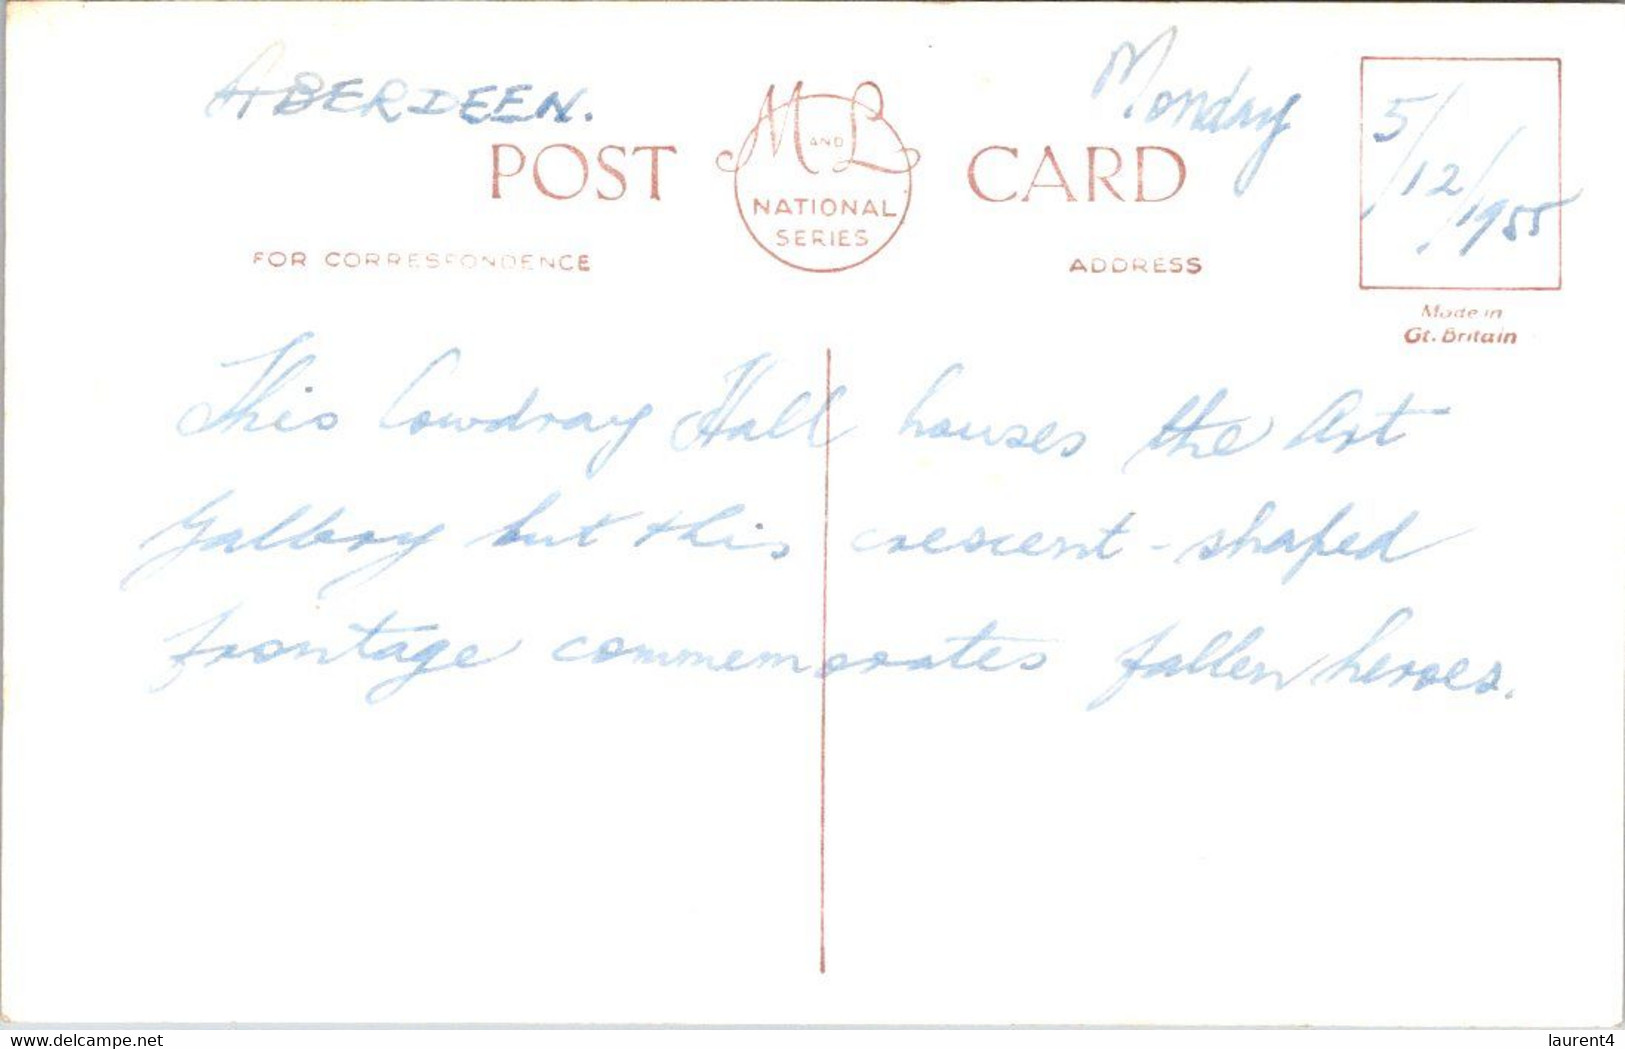 ABERDEEN.
Monday
5/12/1955
POST
M AND L
NATIONAL
SERIES
CARD
FOR CORRESPONDENCE
ADDRESS
Made in
Gt. Britain
This Cowdray Hall houses the Art
Gallery but this crescent-shaped
frontage commemorates fallen heroes.
www.delcampe.net
laurent4